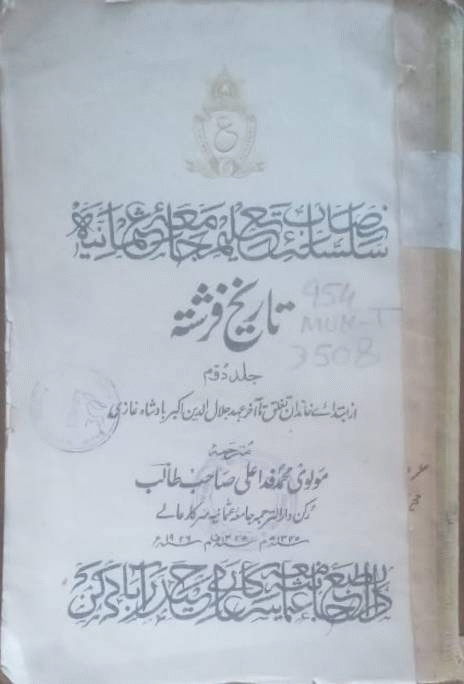 سلسلۂ نصاب تعلیم جامعۂ عثمانیہ
تاریخ فرشتہ
954
MUH-T
3508
جلد دوم
از ابتدائے خاندان تغلق تا آخر عہد جلال الدین اکبر بادشاہ غازی
مترجمہ
مولوی محمد فدا علی صاحب طالب
رکن دارالترجمہ جامعہ عثمانیہ سرکار عالی
دارالطبع جامعہ عثمانیہ سرکار عالی حیدرآباد دکن